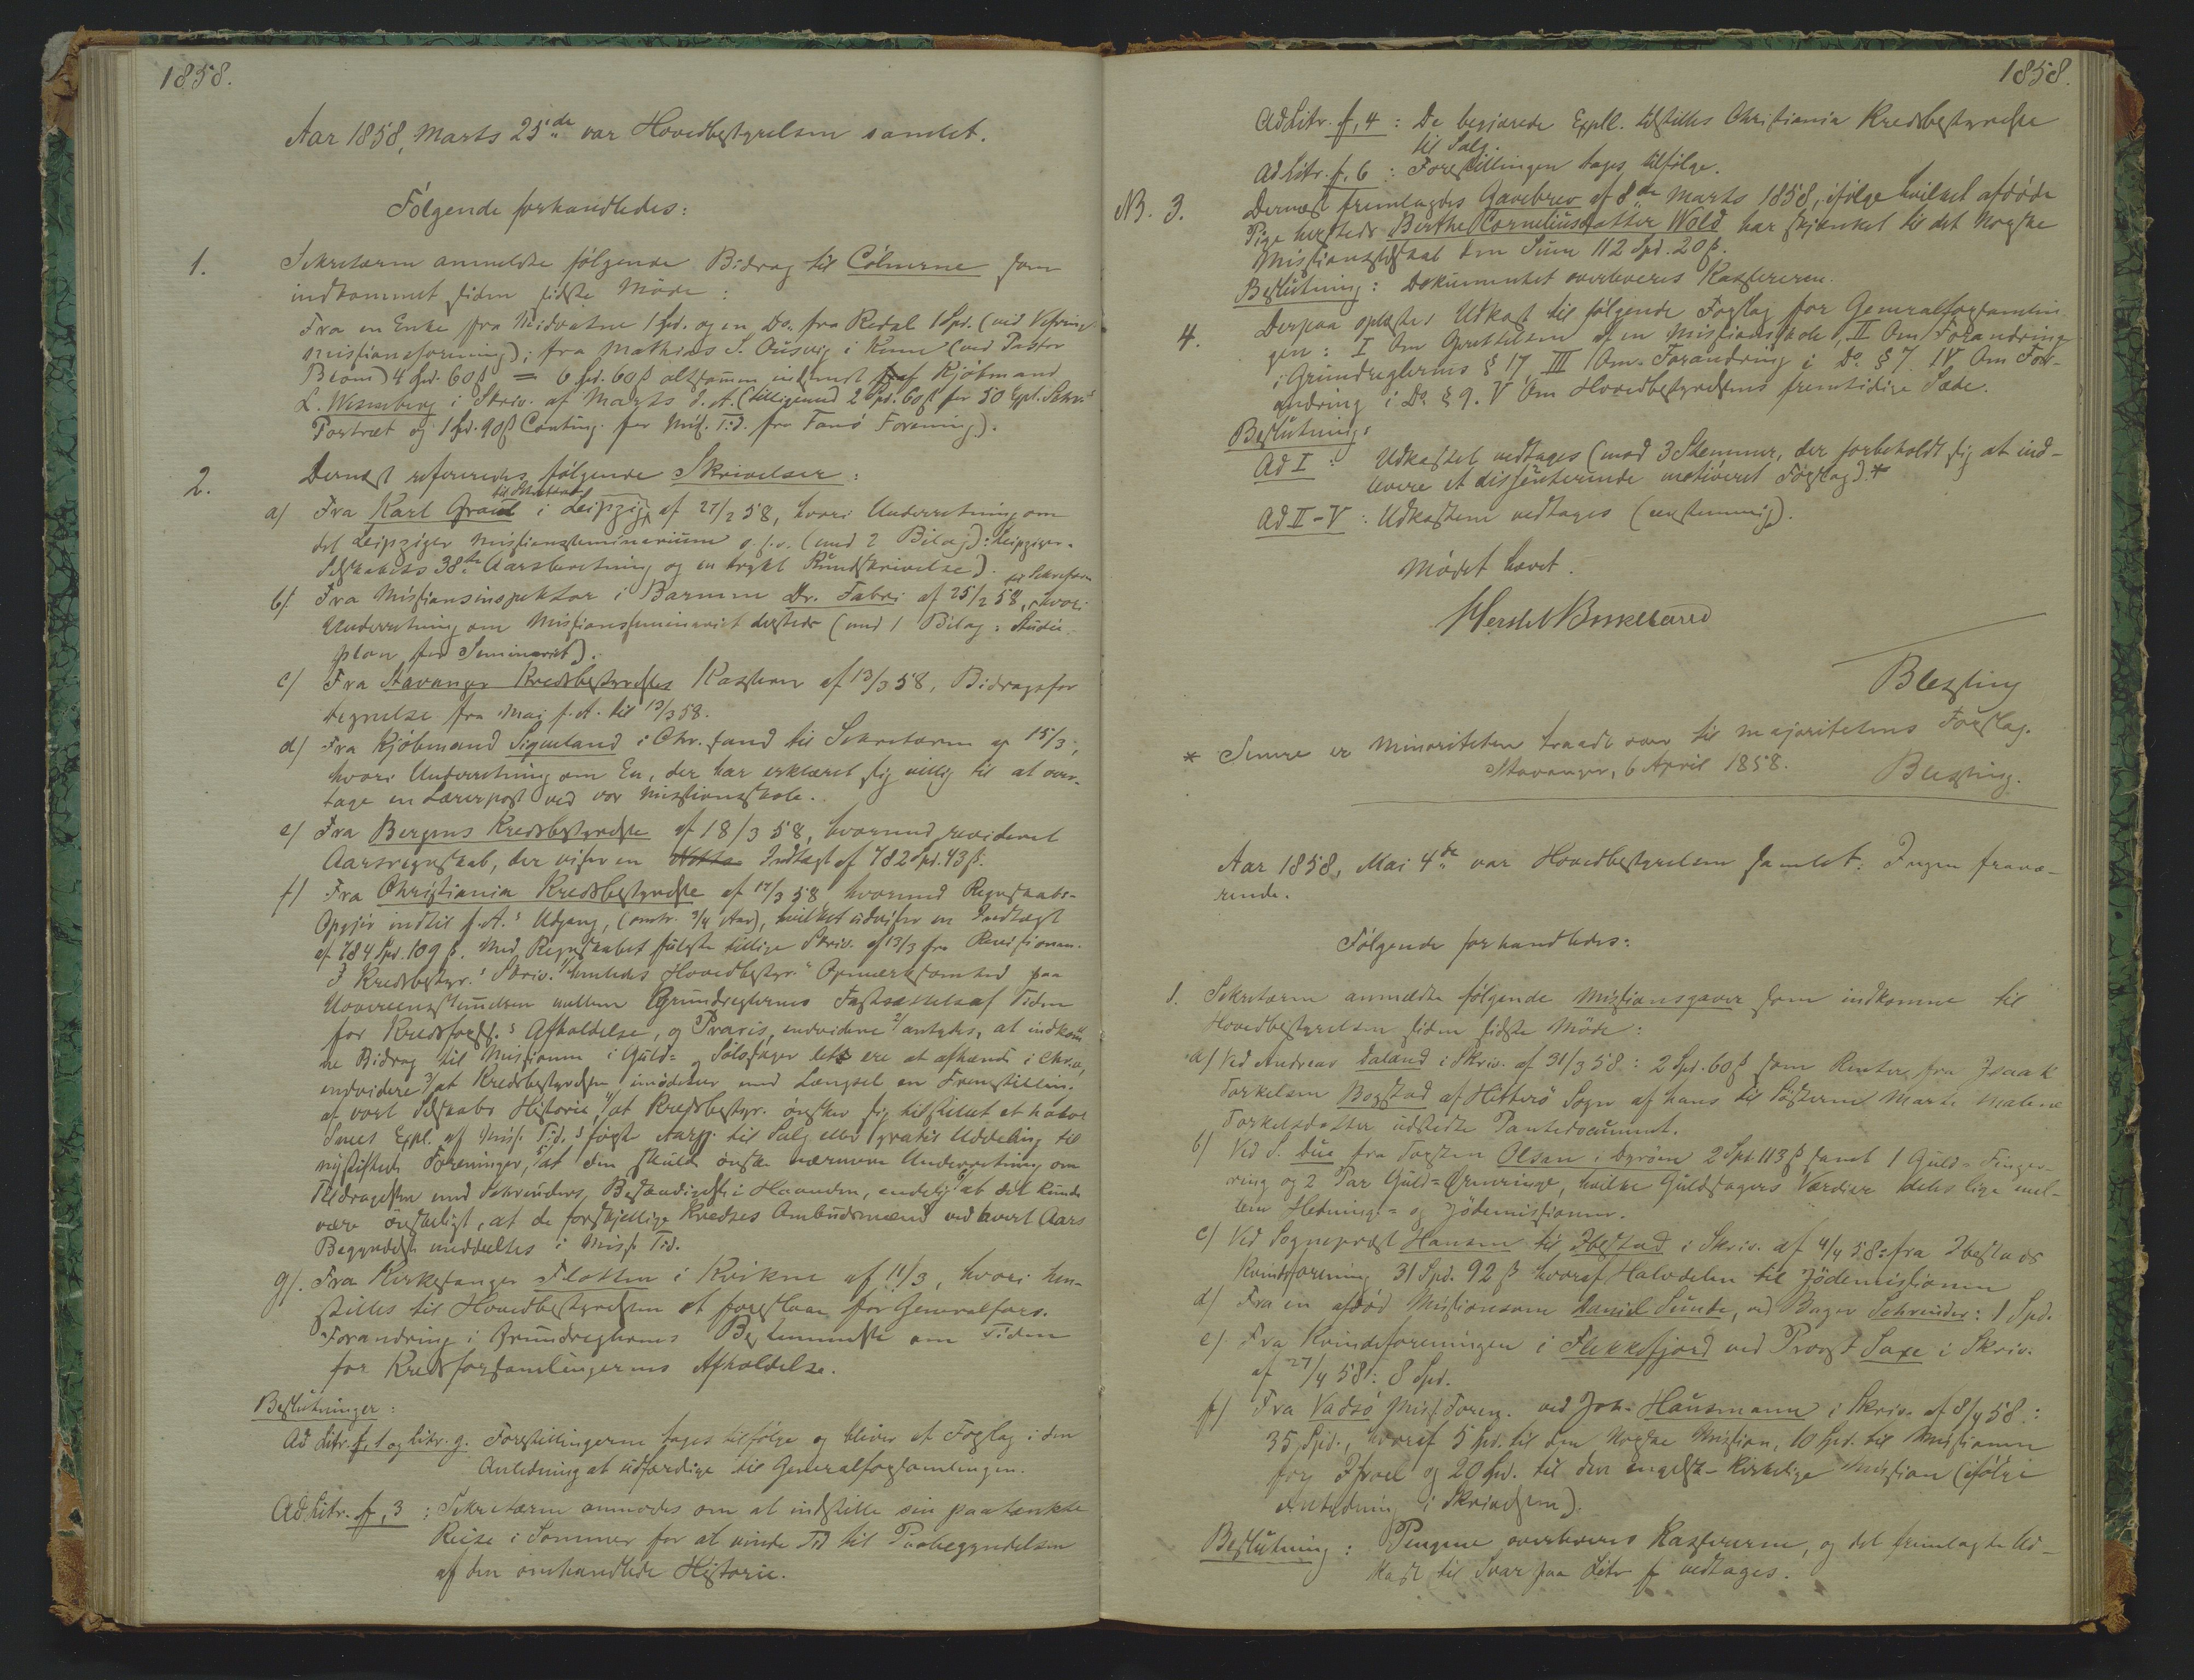 1858.
Aar 1858, Marts 25de var Hovedbestyrelsen samlet.
Følgende forhandledes:
1. Sekretæren anmeldte følgende Bidrag til Cölnerne som
indkommet siden sidste Møde:
Fra en Enke fra 1 Spd. og en Do. fra Redal 1 Spd. (ved
missionsforening); fra Mathias S. i Kinn (ved Pastor
) 4 Spd. 60 ß = 6 Spd. 60 ß altsammen indsendt af Kjøbmand
L. i Skriv. af Marts d. A. (tilligemed 2 Spd. 60 ß for 50 Expl.
Portræt og 1 Spd. 90 ß Conting. for Miss. Tid. fra Forening).
2. Dernæst refereredes følgende Skrivelser:
a) Fra Karl Graul i Leipzig af 27/2 58, hvori Underretning om
det Leipziger Missionsseminarium o.s.v. (med 2 Bilag: Leipziger-
Selskabets 38te Aarsberetning og en trykt Rundskrivelse).
b) Fra Missionsinspektør i Barmen Dr. Fabri af 25/2 58, til Sekretæren hvori
Underretning om Missionsseminariet dersteds (med 1 Bilag: Studie-
plan for Seminariet).
c) Fra Stavanger Kredsbestyrelses Kasserer af 13/3 58, Bidragsfor
tegnelse fra Mai f. A. til 13/3 58.
d) Fra Kjøbmand Sigueland i Chr.sand til Sekretæren af 15/3,
hvori Underretning om En, der har erklæret sig villig til at over-
tage en Lærerpost ved vor Missionsskole.
e) Fra Bergens Kredsbestyrelse af 18/3 58, hvormed revideret
Aarsregnskab, der viser en Indtægt af 782 Spd. 43 ß.
f) Fra Christiania Kredsbestyrelse af 17/3 58 hvormed Regnskabs-
Opgjør indtil f. A.s Udgang, (omtr. 3/4 Aar), hvilket udviser en Indtægt
af 784 Spd. 109 ß. Med Regnskabet fulgte tillige Skriv. af 13/3 fra Revisionen.
I Kredsbestyr.s Skriv. 1/ henledes Hovedbestyr.s Opmærksomhed paa
Uoverensstemmelsen mellem Grundreglernes Fastsættelse af Tiden
for Kredsfors.s Afholdelse, og Praxis, endvidere 2/ antydes, at indkom
ne Bidrag til Missionen i Guld- og Sølvsager let ere at afhænde i Chr.a,
endvidere 3/ at Kredsbestyrelsen imødeser med Længsel en Fremstilling
af vort Selskabs Historie 4/ at Kredsbestyr. ønsker sig tilstillet et halvt
Snees Expl. af Miss. Tid.s første Aarg. til Salg eller gratis Uddeling til
nystiftede Foreninger, 5/ at den skulde ønske nærmere Underretning om
Tildragelsen med Schreuders Bestandighed i Haanden, endelig 6/ at det kunde
være ønskeligt, at de forskjellige Kredses Ombudsmænd ved hvert Aars
Begyndelse meddeeltes i Miss. Tid.
g). Fra Kirkesanger Flotten i Kvikne af 11/3, hvori hen-
stilles til Hovedbestyrelsen at foreslaae for Generalfors.
Forandring i Grundreglernes Bestemmelse om Tiden
for Kredsforsamlingernes Afholdelse.
Beslutninger:
Ad Litr. f, 1 og Litr. g. Forestillingerne tages tilfølge og bliver et Forslag i den
Anledning at udfærdige til Generalforsamlingen.
Ad Litr. f, 3: Sekretæren anmodes om at indstille sin paatænkte
Reise i Sommer for at vinde Tid til Paabegyndelsen
af den omhandlede Historie.
1858.
Ad Litr. f, 4: De begjærede Expll. tilstilles Christiania Kredsbestyrelse
til Salg.
Ad Litr. f, 6: Forestillingen tages tilfølge.
NB. 3. Dernæst fremlagdes Gavebrev af 8de Marts 1858, ifølge hvilket afdøde
Pige hersteds Berthe Corneliusdatter Wold har skjænket til det Norske
Missionsselskab den Sum 112 Spd. 20 ß.
Beslutning: Dokumentet overleveres Kassereren.
4. Derpaa oplæstes Udkast til følgende Forslag for Generalforsamlin
gen: I Om Oprettelsen af en Missionsskole, II Om Forandring
i Grundreglernes § 17, III Om Forandring i Do. § 7. IV Om For-
andring i Do. § 9. V Om Hovedbestyrelsens fremtidige Sæde.
Beslutning:
Ad I: Udkastet vedtages (mod 3 Stemmer, der forbeholdt sig at ind-
levere et dissenterende motiveret Forslag).*
Ad II-V: Udkastene vedtages (eenstemmig).
Mødet hævet.
Blessing
* Senere er Minoriteten traadt over til majoritetens Forslag.
Stavanger, 6 April 1858. Blessing.
Aar 1858, Mai 4de var Hovedbestyrelsen samlet: Ingen fravæ-
rende.
Følgende forhandledes:
1. Sekretæren anmeldte følgende Missionsgaver som indkomne til
Hovedbestyrelsen siden sidste Møde:
a) Ved Andreas Daland i Skriv. af 31/3 58: 2 Spd. 60 ß som Renter fra Isaak
Torkelsen Bogstad af Hitterø Sogn af hans til Søsteren Marte Malene
Torkelsdatter udstedte Pantedocument.
b) Ved S. Due fra Torsten Olsen i Dyrøen 2 Spd. 113 ß samt 1 Guld-Finger-
ring og 2 Par Guld-Ørenringe, hvilke Guldsagers Værdier deles lige mel-
lem Hedning- og Jødemissionen.
c) Ved Sognepræst Hansen til Ibestad i Skriv. af 4/4 58: fra Ibestads
Kvindeforening 31 Spd. 92 ß hvoraf Halvdelen til Jødemissionen
d) Fra en afdød Missionsven Daniel Sunde, ved Bager Schreuder: 1 Spd.
e) Fra Kvindeforeningen i Flekkefjord ved Provst Saxe i Skriv.
af 27/4 58: 8 Spd.
f) Fra Vadsø Miss. Foren. ved Joh. Hausmann i Skriv. af 8/4 58:
35 Spd., hvoraf 5 Spd. til den Norske Mission, 10 Spd. til Missionen
for Israel og 20 Spd. til den engelsk-kirkelige Mission (ifølge
Antydning i Skrivelsen).
Beslutning: Pengene overleveres Kassereren, og det fremlagte Ud-
kast til Svar paa Litr. f vedtages.